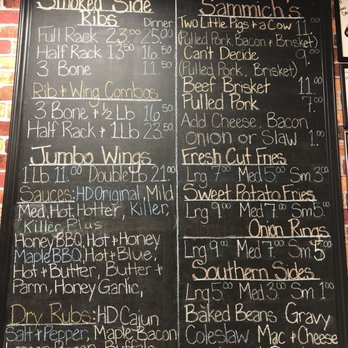 Smoked Side
Ribs Dinner
Full Rack 23.00 25.00
Half Rack 13.50 16.50
3 Bone 11.50
Rib & Wing Combos
3 Bone + ½ Lb 16.50
Half Rack + 1 Lb 23.50
Jumbo Wings
1 Lb 11.00 Double Lb 21.00
Sauces: HD Original, Mild
Med, Hot, Hotter, Killer,
Killer Plus
Honey BBQ, Hot & Honey
Maple BBQ, Hot & Blue,
Hot & Butter, Butter &
Parm, Honey Garlic,
Dry Rubs: HD Cajun
Salt & Pepper, Maple Bacon
Sammich's
Two Little Pigs & a Cow 11.00
(Pulled Pork, Bacon & Brisket)
Can't Decide 9.00
(Pulled Pork, Brisket)
Beef Brisket 11.00
Pulled Pork 7.00
Add Cheese, Bacon
Onion or Slaw 1.00
Fresh Cut Fries
Lrg 7.00 Med 5.00 Sm 3.00
Sweet Potato Fries
Lrg 9.00 Med 7.00 Sm 5.00
Onion Rings
Lrg 9.00 Med 7.00 Sm 5.00
Southern Sides
Lrg 5.00 Med 3.00 Sm 1.00
Baked Beans Gravy
Coleslaw Mac & Cheese